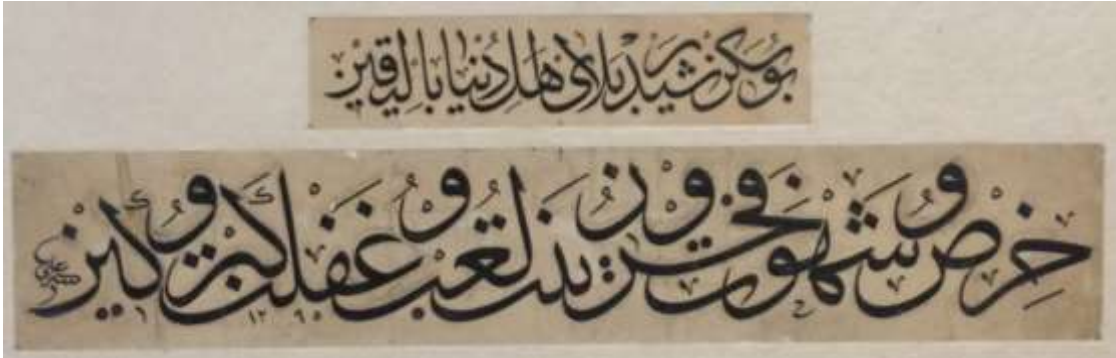 بو سکز شیدر بلای اهل دنیا بالیقین
حرص و شهوت فخر و زینت لعب و غفلت کبر و کین
١٢٩٥